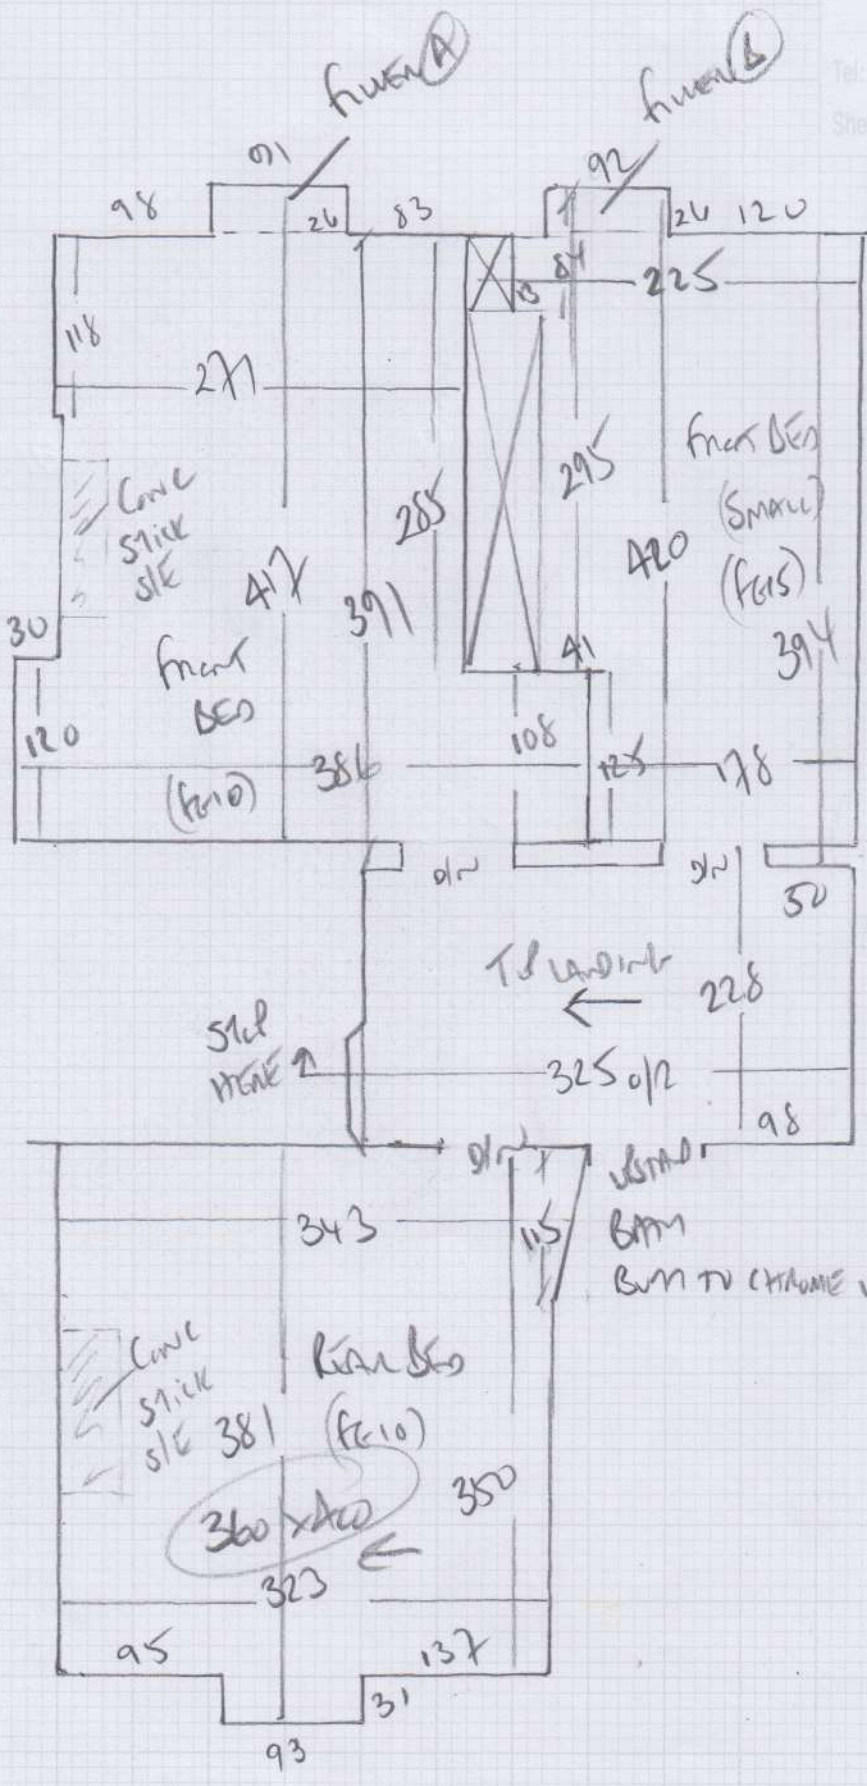 FILLER A
FILLER B
Tel:
She
91
92
98
26
83
26
120
84
13
225
118
271
CONC
STICK
S/E
285
295
FRONT BED
(SMALL)
(FE15)
417
391
420
394
30
FRONT
BED
(FE10)
41
120
386
108
125
178
D/N
D/N
50
TOP LANDING
←
228
STEP
HERE
325 O/R
98
D/N
343
115
BATH
BUTT TO CHROME
CONC
STICK
S/E
REAR BED
(FE10)
381
350
←
323
95
137
31
93